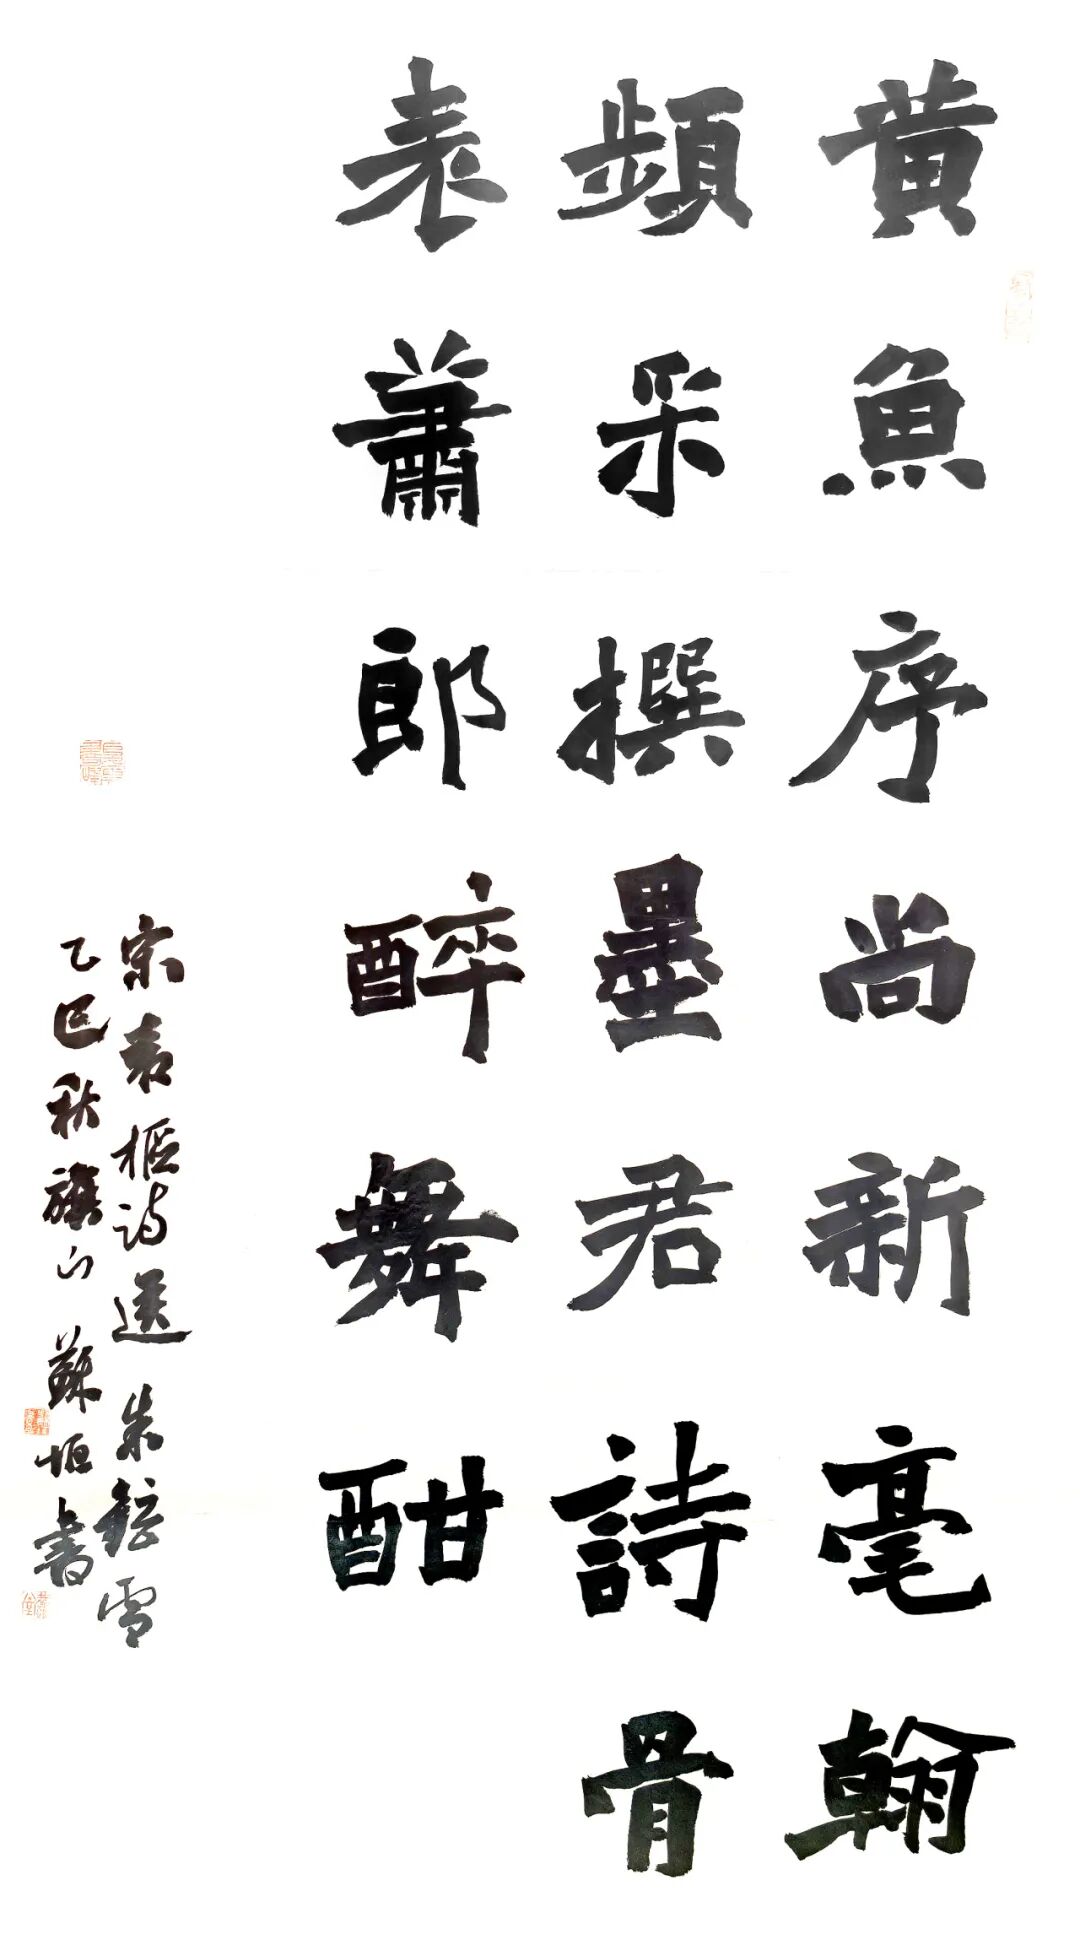 黄魚序尚新毫翰
頻采撰墨君詩骨
表蕭郎醉舞酣
宋袁樞詩送朱鋐雪
乙巳秋旗山蘇垣書